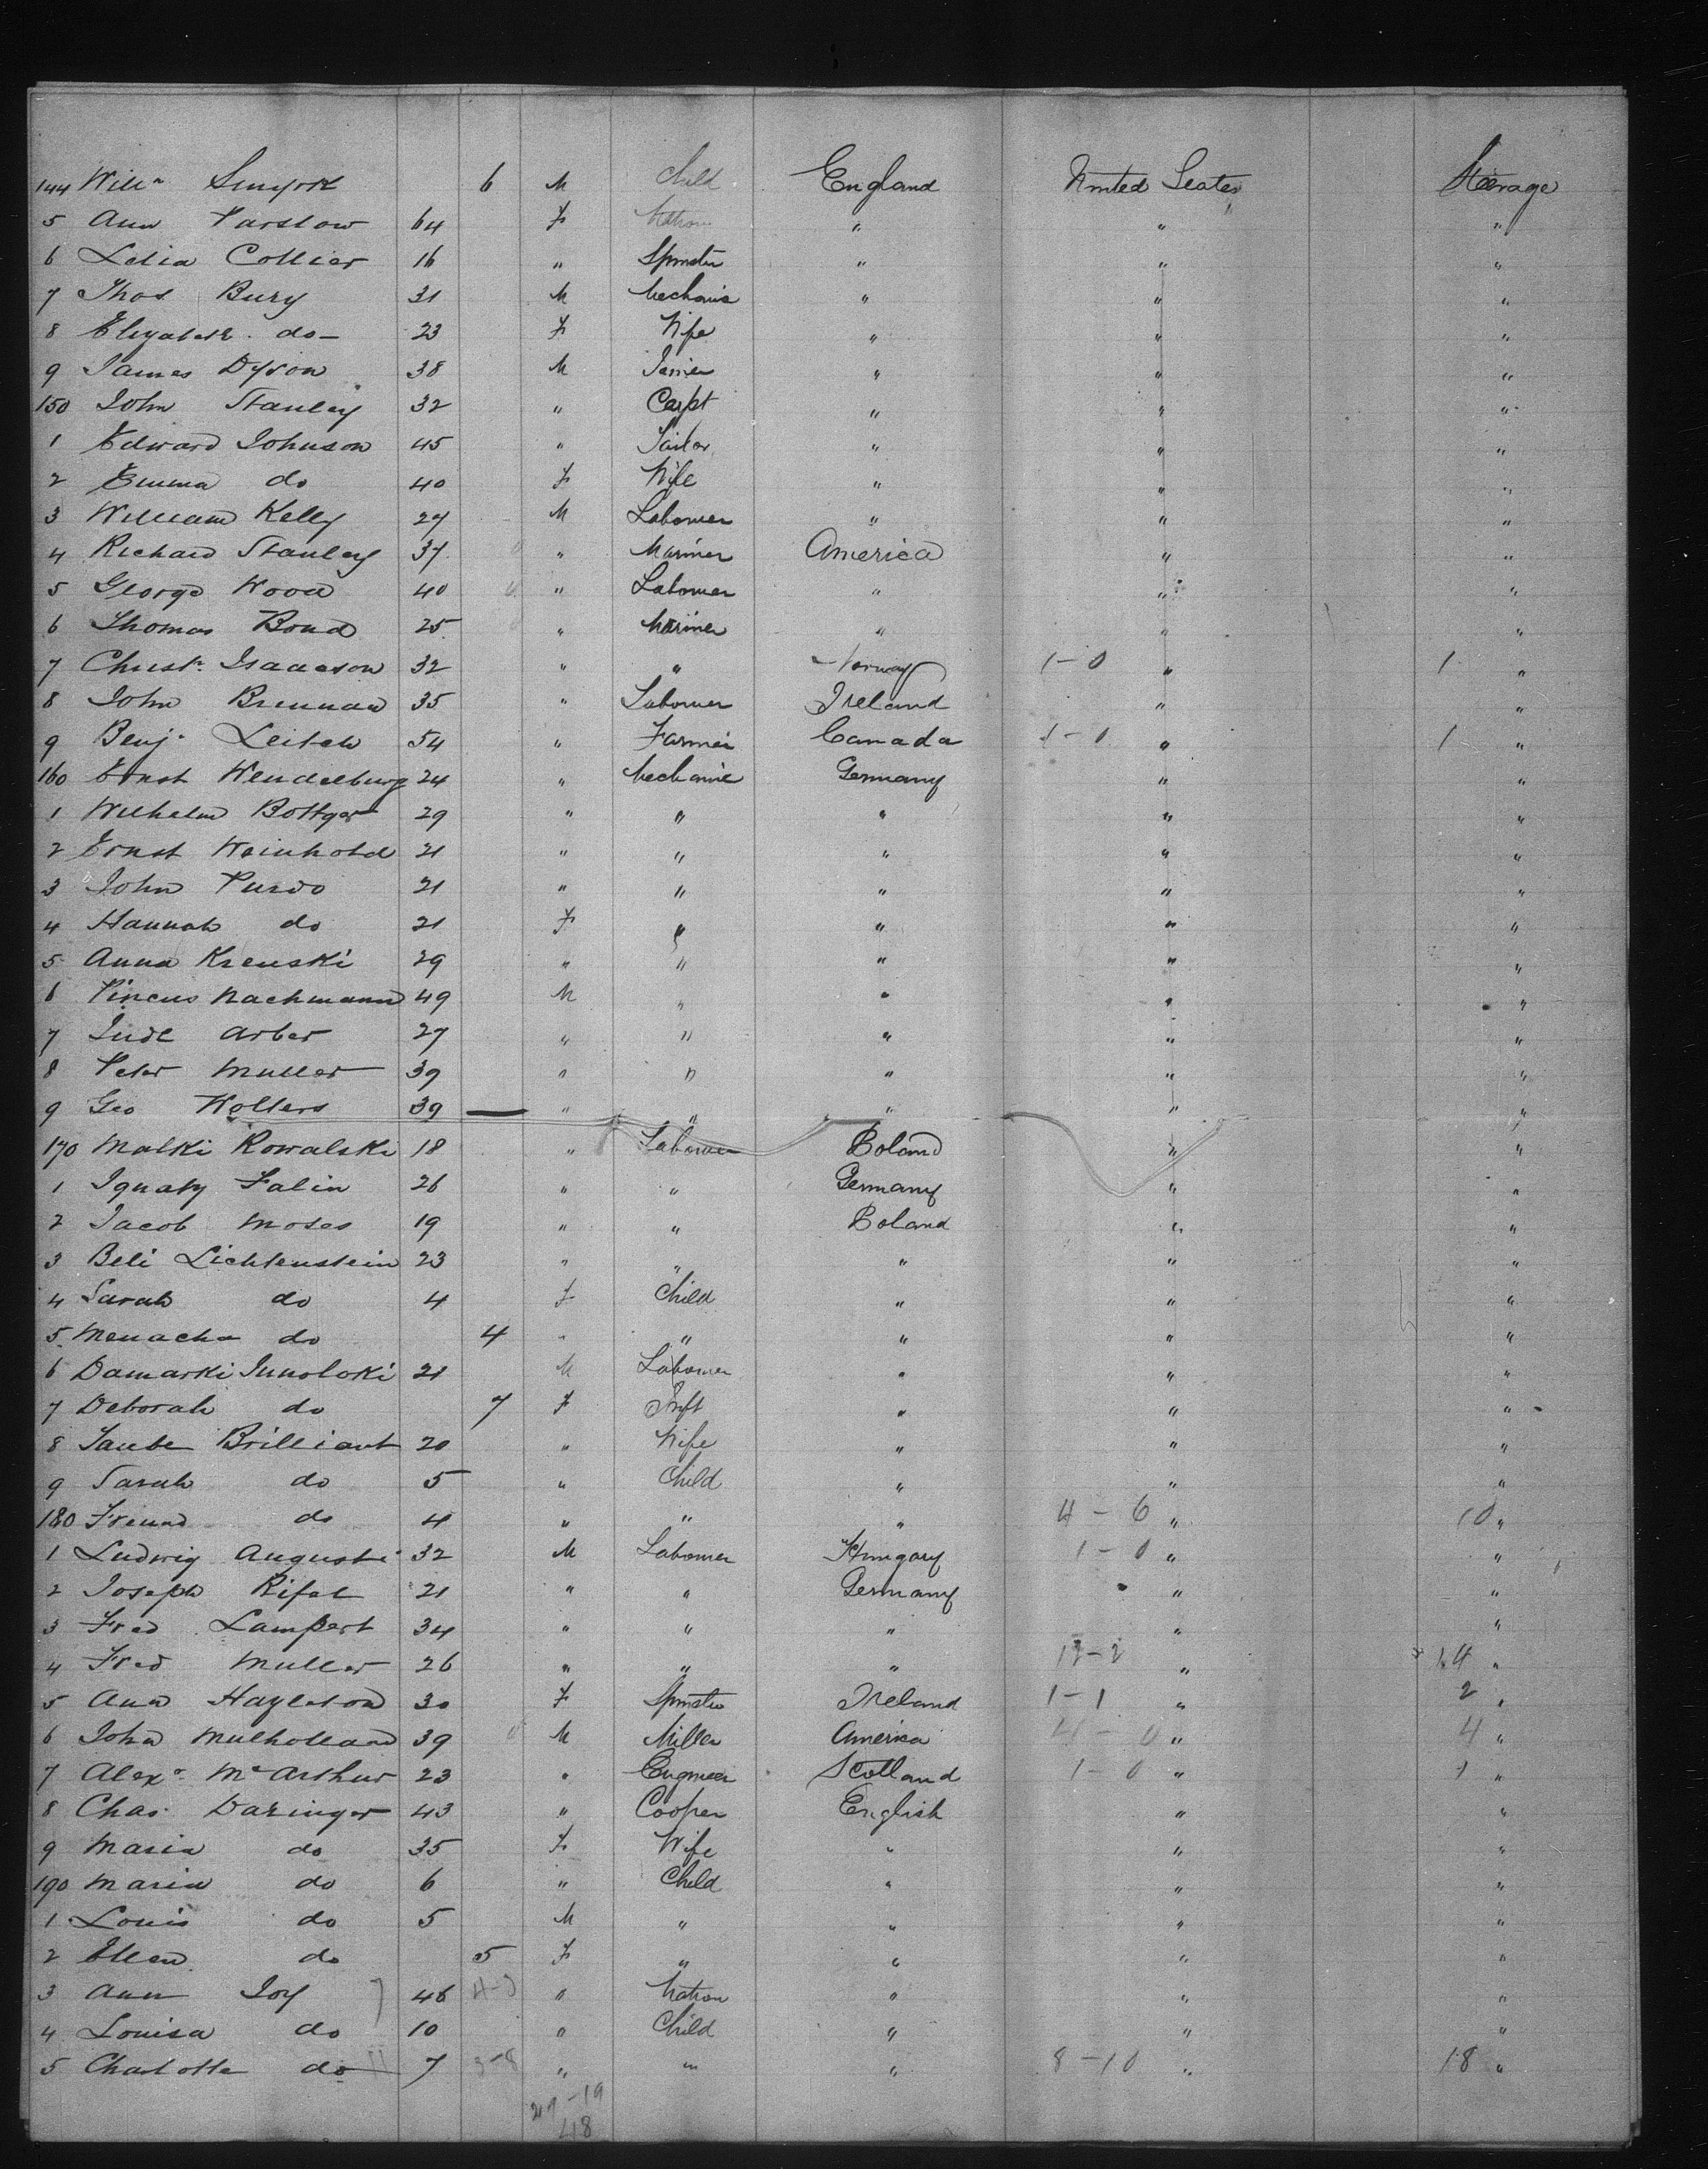 144 Willm 6 M Child England United States Steerage
5 Ann Parslow 64 F Matron " " "
6 Lelia Collier 16 " Spinster " " "
7 Thos Bury 31 M Mechanic " " "
8 Elizabeth do 23 F Wife " " "
9 James Dyson 38 M Joiner " " "
150 John Stanley 32 " Carpt " " "
1 Edward Johnson 45 " Tailor " " "
2 Emma do 40 F Wife " " "
3 William Kelly 27 M Labourer " " "
4 Richard Stanley 37 " Mariner America " "
5 George Wood 40 " Labourer " " "
6 Thomas Bond 25 " Mariner " " "
7 Christn Isaacson 32 " " Norway 1-0 " 1 "
8 John Brennan 35 " Labourer Ireland " "
9 Benj. Leitch 54 " Farmer Canada 1-0 " 1 "
160 Ernst Wendelburg 24 " Mechanic Germany " "
1 Wilhelm Bottger 29 " " " " "
2 Ernst Weinhold 21 " " " " "
3 John Purdo 21 " " " " "
4 Hannah do 21 F " " " "
5 Anna Krenski 29 " " " " "
6 Pincus Nachmann 49 M " " " "
7 Jude Arber 27 " " " " "
8 Peter Muller 39 " " " " "
9 Geo Wolters 39 — " " " " "
170 Malki Kowalski 18 " Labourer Boland " "
1 Ignatz Falin 26 " " Germany " "
2 Jacob Moses 19 " " Boland " "
3 Beli Lichtenstein 23 " " " " "
4 Sarah do 4 F Child " " "
5 Menacha do 4 " " " " "
6 Damarki 21 M Labourer " " "
7 Deborah do 7 F Inft " " "
8 Taube Brilliant 20 " Wife " " "
9 Sarah do 5 " Child " " "
180 Freund do 4 " " " 4-6 " 10 "
1 Ludwig Augusti 32 M Labourer Hungary 1-0 " "
2 Joseph Rifat 21 " " Germany " "
3 Fred Lampert 34 " " " " "
4 Fred Muller 26 " " " 12-2 " 14 "
5 Ann Hayleton 30 F Spinster Ireland 1-1 " 2 "
6 John Mulholland 39 M Miller America 4-0 " 4 "
7 Alexr McArthur 23 " Engineer Scotland 1-0 " 1 "
8 Chas. Daringer 43 " Cooper English " "
9 Maria do 35 F Wife " " "
190 Maria do 6 " Child " " "
1 Louis do 5 M " " " "
2 Ellen do 5 F " " " "
3 Ann Joy 46 " Matron " " "
4 Louisa do 10 " Child " " "
5 Charlotte do 7 3-8 " " " 8-10 " 18 "
29-19
48